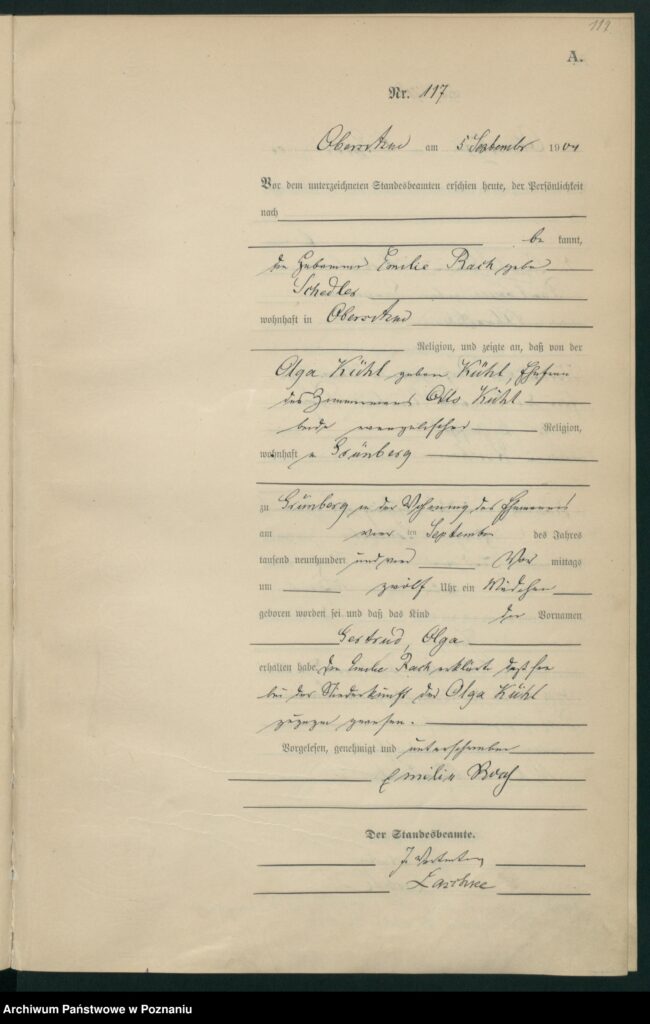 119
A.
Nr. 117
am 5 September 1904
Vor dem unterzeichneten Standesbeamten erschien heute, der Persönlichkeit
nach
be kannt,
die Hebamme Emilie Rach gebo
Schedler
wohnhaft in
Religion, und zeigte an, daß von der
Olga Kühl geboren Kühl, Ehefrau
des Zimmermanns Otto Kühl
beide evangelischer Religion,
wohnhaft Grünberg
zu Grünberg in der Wohnung des Ehemannes
am vier ten September des Jahres
tausend neunhundert und vier Vor mittags
um zwölf Uhr ein Mädchen
geboren worden sei und daß das Kind die Vornamen
Gertrud, Olga
erhalten habe. Die Emilie Rach erklärte daß sie
bei der Niederkunft der Olga Kühl
zugegen gewesen.
Vorgelesen, genehmigt und unterschrieben
Emilie Rach
Der Standesbeamte.
Archiwum Państwowe w Poznaniu